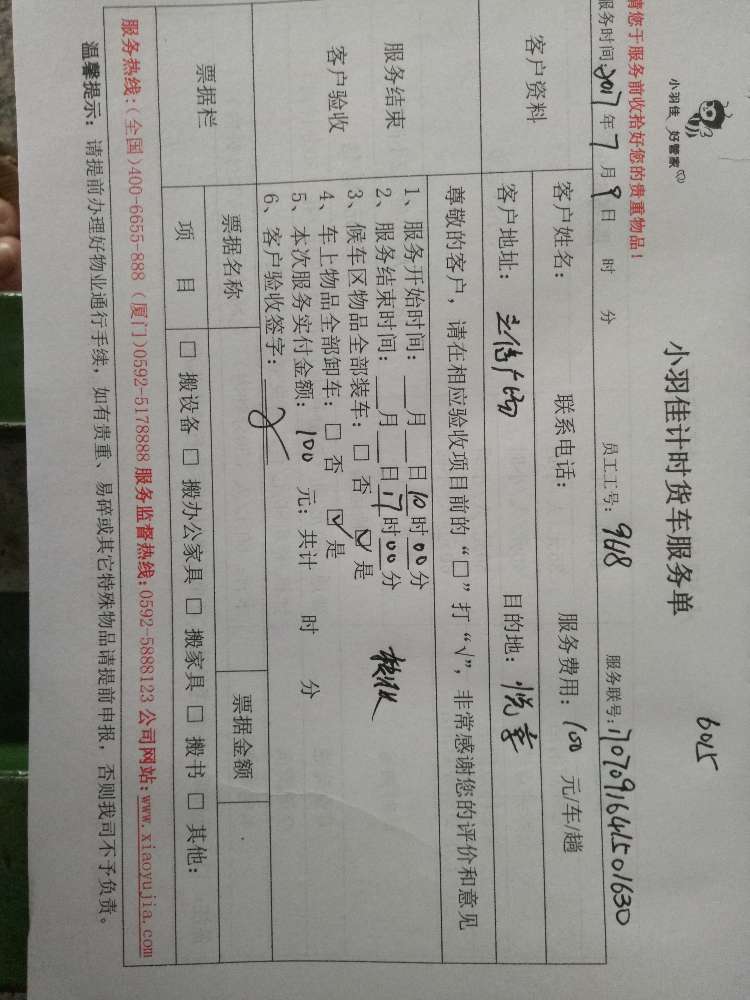 小羽佳 好管家
6015
小羽佳计时货车服务单
请您于服务前收拾好您的贵重物品!
服务时间:2017年7月9日 时 分 员工工号:918 服务联号:17070916641501630
客户资料
客户姓名: 联系电话: 服务费用:100元/车/趟
客户地址: 目的地:悦幸
服务结束
客户验收
尊敬的客户,请在相应验收项目前的“□”打“√”,非常感谢您的评价和意见
1、服务开始时间:__月__日10时00分
2、服务结束时间:__月__日17时00分
3、候车区物品全部装车:□ 否 ☑ 是
4、车上物品全部卸车:□ 否 ☑ 是
5、本次服务实付金额:100 元;共计 时 分
6、客户验收签字:
票据栏
票据名称 票据金额
项 目 □ 搬设备 □ 搬办公家具 □ 搬家具 □ 搬书 □ 其他:
服务热线:(全国)400-6655-888 (厦门)0592-5178888 服务监督热线:0592-5888123 公司网站:www.xiaoyujia.com
温馨提示:请提前办理好物业通行手续,如有贵重、易碎或其它特殊物品请提前申报,否则我司不予负责。